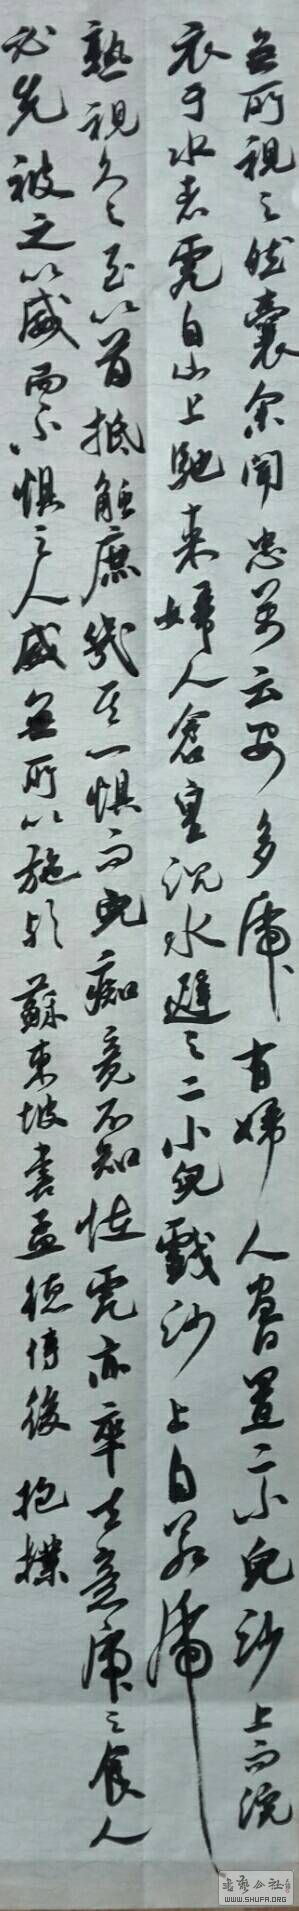 無所視之然囊余聞忠萬云安多虎有婦人晝置二小兒沙上而浣
衣于水者虎自山上馳来婦人倉皇沉水避之二小兒戲沙上自若虎
熟視久之至以首抵觕庶幾其一惧而兒痴竟不知怪虎亦卒去意虎之食人
必先被之以威而不惧之人威無所以施欤 蘇東坡書孟德傳後 抱樸
书艺公社
WWW.SHUFA.ORG